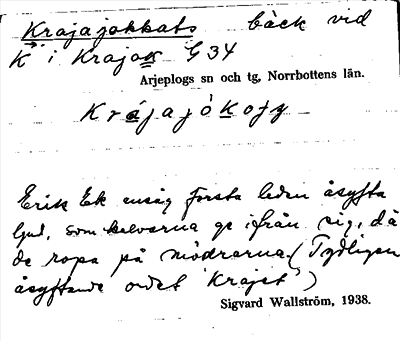 Krajajokkats bäck vid
K i Krajaok G 34
Arjeplogs sn och tg, Norrbottens län.
KrájajòkofJ
Erik Ek ansåg första leden åsyfta
ljud, som kalvarna ge ifrån sig, då
de ropa på mödrarna. (Tydligen
åsyftande ordet 'krajet')
Sigvard Wallström, 1938.